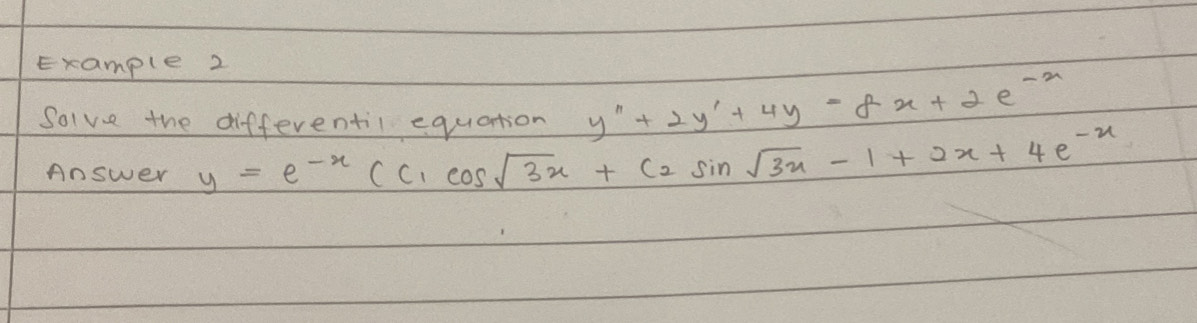 Example 2
Solve the differentil equation y" + 2y' + 4y = 8x + 2e^{-x}
Answer y = e^{-x} (C₁ cos√3x + C₂ sin √3x - 1 + 2x + 4e^{-x}